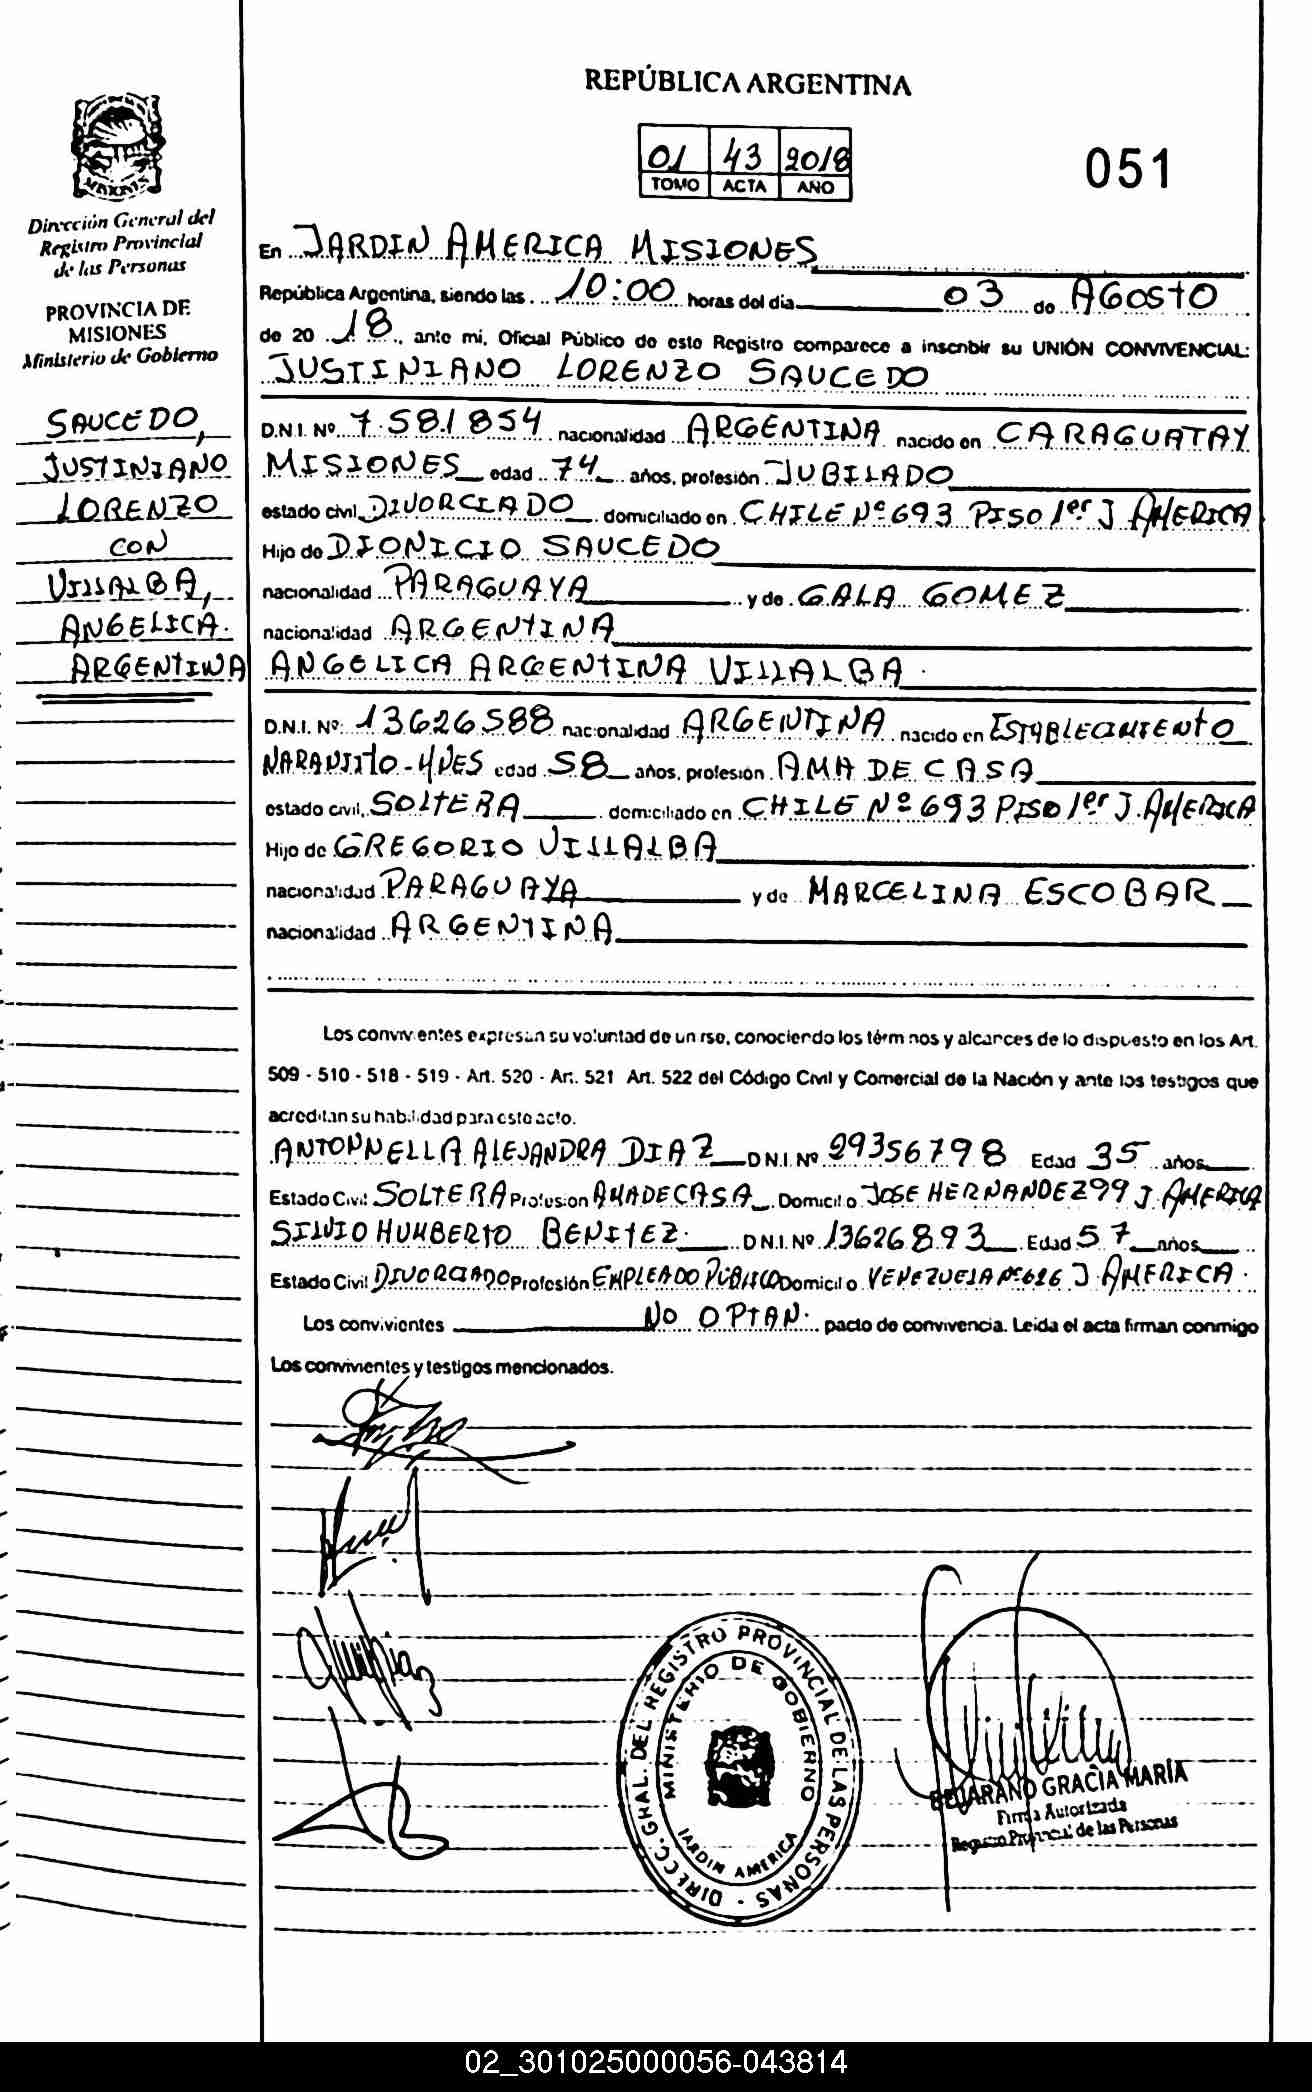 REPÚBLICA ARGENTINA
01 43 2018
TOMO ACTA AÑO
051
Dirección General del
Registro Provincial
de las Personas
PROVINCIA DE
MISIONES
Ministerio de Gobierno
SAUCEDO,
JUSTINIANO
LORENZO
CON
VILLALBA,
ANGELICA
ARGENTINA
En JARDIN AMERICA MISIONES
República Argentina, siendo las 10:00 horas del día 03 de AGOSTO
de 20 18, ante mi, Oficial Público de este Registro comparece a inscribir su UNIÓN CONVIVENCIAL:
JUSTINIANO LORENZO SAUCEDO
D.N.I. Nº 7.581854 nacionalidad ARGENTINA nacido en CARAGUATAY
MISIONES edad 74 años, profesión JUBILADO
estado civil DIVORCIADO domiciliado en CHILE Nº 693 PISO 1er J AMERICA
Hijo de DIONICIO SAUCEDO
nacionalidad PARAGUAYA y de GALA GOMEZ
nacionalidad ARGENTINA
ANGELICA ARGENTINA VILLALBA
D.N.I. Nº: 13626588 nacionalidad ARGENTINA nacido en ESTABLECIMIENTO
NARANJITO - edad 58 años, profesión AMA DE CASA
estado civil, SOLTERA domiciliado en CHILE Nº 693 PISO 1er J. AMERICA
Hijo de GREGORIO VILLALBA
nacionalidad PARAGUAYA y de MARCELINA ESCOBAR
nacionalidad ARGENTINA
Los convivientes expresan su voluntad de unirse, conociendo los términos y alcances de lo dispuesto en los Art.
509 - 510 - 518 - 519 - Art. 520 - Art. 521 Art. 522 del Código Civil y Comercial de la Nación y ante los testigos que
acreditan su habilidad para este acto.
ANTONNELLA ALEJANDRA DIAZ D.N.I. Nº 29356798 Edad 35 años
Estado Civil SOLTERA Profesión AMADECASA Domicilio JOSE HERNANDEZ 99 J. AMERICA
SILVIO HUMBERTO BENITEZ D.N.I. Nº 13626893 Edad 57 años
Estado Civil DIVORCIADO Profesión EMPLEADO PÚBLICO Domicilio VENEZUELA Nº 626 J. AMERICA.
Los convivientes NO OPTAN pacto de convivencia. Leída el acta firman conmigo
Los convivientes y testigos mencionados.
DIRECC. GRAL. DEL REGISTRO PROVINCIAL DE LAS PERSONAS
MINISTERIO DE GOBIERNO
JARDIN AMERICA
BEJARANO GRACIA MARÍA
Firma Autorizada
Registro Provincial de las Personas
02_301025000056-043814